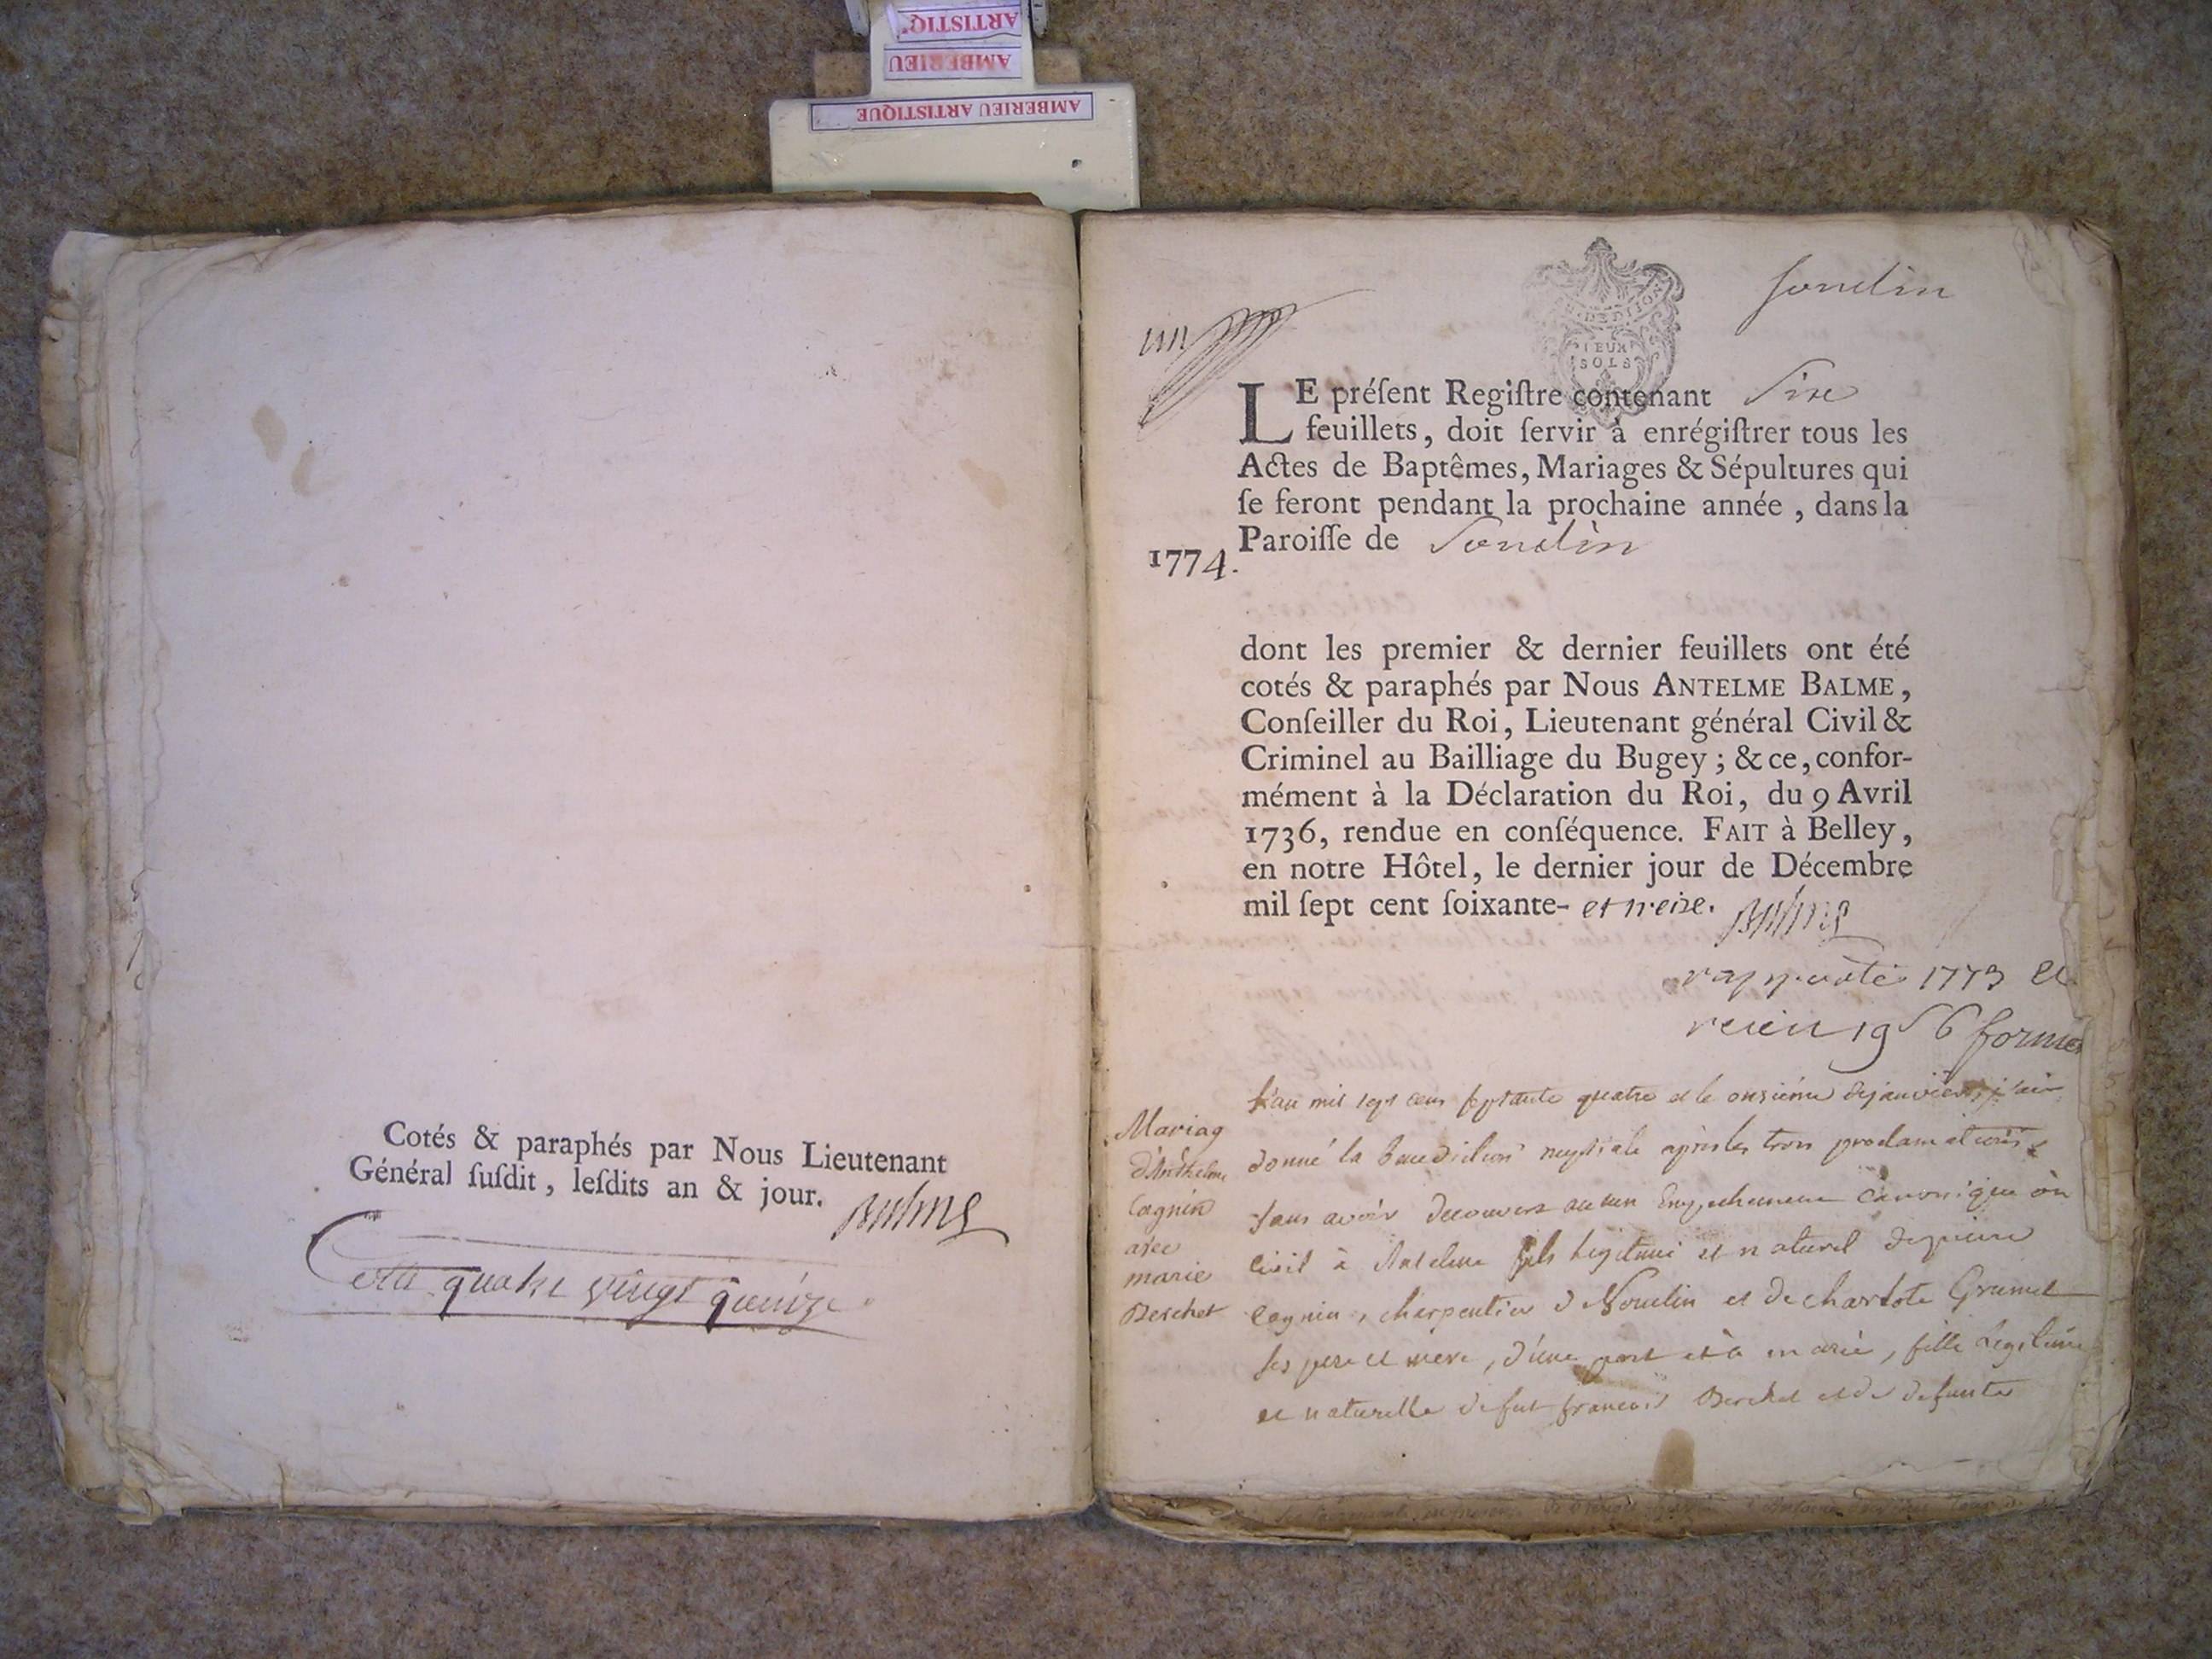 ARTISTIQ
AMBERIEU
AMBERIEU ARTISTIQUE
Cotés & paraphés par Nous Lieutenant
Général ſuſdit, leſdits an & jour. Balme
quatre vingt
Sondin
DEUX
SOLS
LE préſent Regiſtre contenant Sixe
feuillets, doit ſervir à enrégiſtrer tous les
Actes de Baptêmes, Mariages & Sépultures qui
ſe feront pendant la prochaine année, dans la
Paroiſſe de Sondin
1774.
dont les premier & dernier feuillets ont été
cotés & paraphés par Nous ANTELME BALME,
Conſeiller du Roi, Lieutenant général Civil &
Criminel au Bailliage du Bugey; & ce, confor-
mément à la Déclaration du Roi, du 9 Avril
1736, rendue en conſéquence. FAIT à Belley,
en notre Hôtel, le dernier jour de Décembre
mil ſept cent ſoixante- et treize. Balme
1773 et
Mariag
d'Anthelme
Cognin
avec
marie
Berchet
L'an mil sept cens septante quatre et le onzième de janvier, j'ai
donné la benediction nuptiale après les trois proclamations &
sans avoir decouvert aucun Empechement canonique ou
civil à Antelme fils legitime et naturel de pierre
Cognin, charpentier de Sondin et de charlote Grumet
ses pere et mere, d'une part et à marie, fille Legitime
et naturelle de fut francois Berchet et de defunte